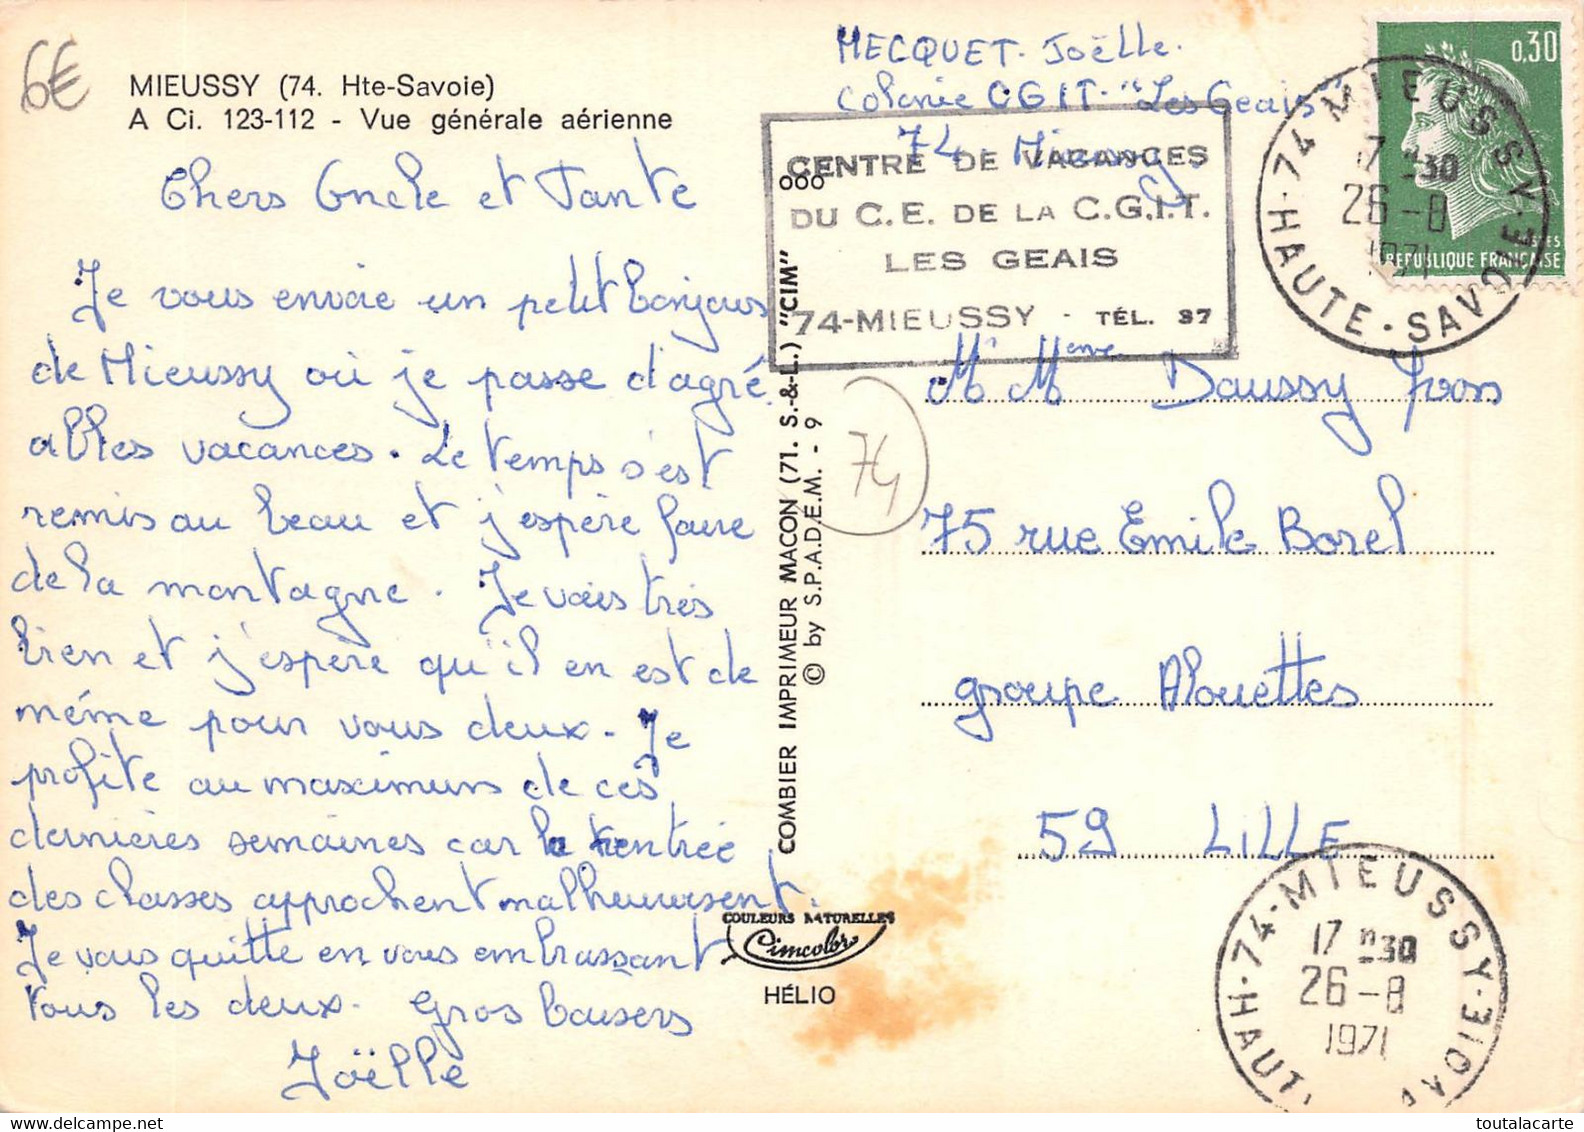 6€
MIEUSSY (74. Hte-Savoie)
A Ci. 123-112 - Vue générale aérienne
Chers Oncle et Tante
Je vous envoie un petit bonjour
de Mieussy où je passe d'agré
ables vacances. Le temps s'est
remis au beau et j'espère faire
de la montagne. Je vais très
bien et j'espère qu'il en est de
même pour vous deux. Je
profite au maximum de ces
dernières semaines car la rentrée
des classes approchent malheureusent.
Je vous quitte en vous embrassant
tous les deux. Gros baisers
Joëlle
MECQUET. Joëlle.
Colonie CGIT. "Les Geais"
74 - Mieussy
CENTRE DE VACANCES
DU C.E. DE LA C.G.I.T.
LES GEAIS
74-MIEUSSY - TÉL. 37
ooo
COMBIER IMPRIMEUR MACON (71. S.-&-L.) "CIM"
© by S.P.A.D.E.M. - 9
74
0,30
POSTES
REPUBLIQUE FRANÇAISE
74 - MIEUSSY - HAUTE-SAVOIE
17 H 30
26 - 8
1971
Mr Meme Daussy Yvon
75 rue Emile Borel
groupe Alouettes
59 LILLE
COULEURS NATURELLES
Cimcolor
HÉLIO
74 - MIEUSSY - HAUTE-SAVOIE
17 H 30
26 - 8
1971
toutalacarte